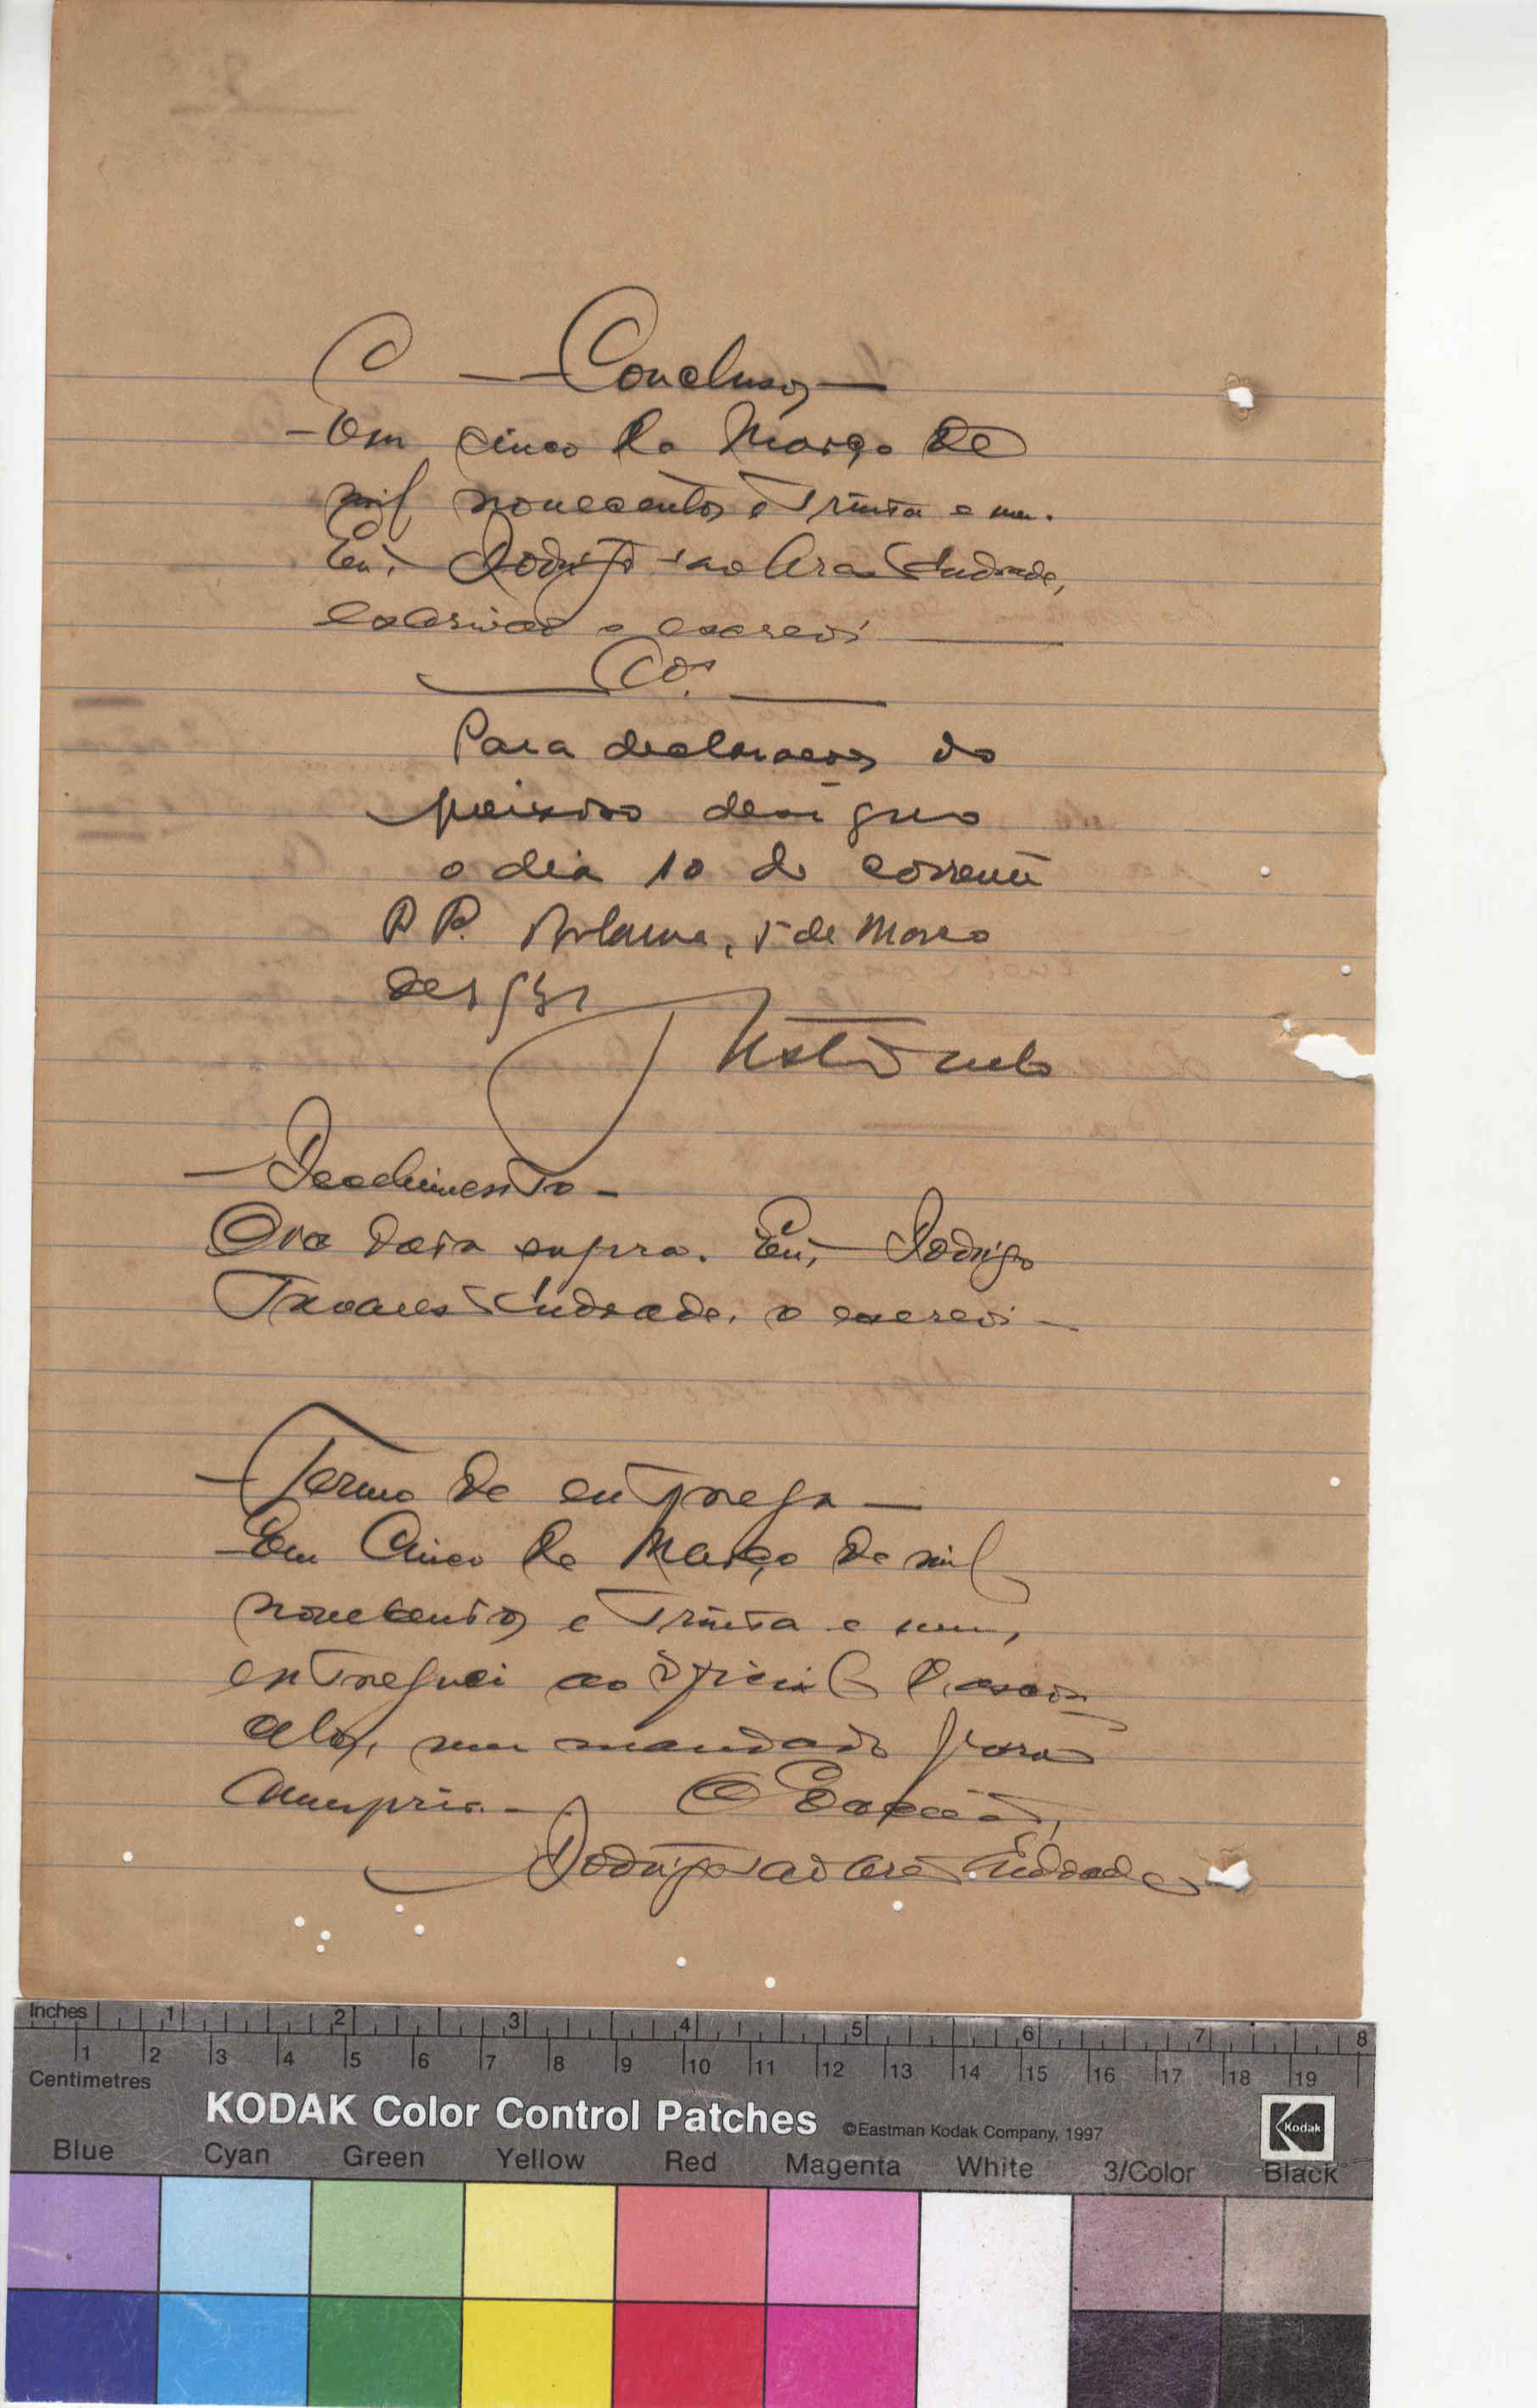 C — Conclusos —
Em cinco de Março de
mil novecentos e trinta e um.
Eu, Rodrigo Tavares Andrade,
escrivão o escrevi
Cos.
Para declaracoes do
designo
o dia 10 do corrente
P. P. 5 de Marco
de 1931
Neto
— Recebimento —
Era data supra. Eu, Rodrigo
Tavares Andrade, o escrevi —
— Termo de entrega —
Em Cinco de Março de mil
novecentos e trinta e um,
entreguei ao official
um mandado para
cumprir. — O Escrivão,
Rodrigo Tavares Andrade
Inches 1 2 3 4 5 6 7 8
1 2 3 4 5 6 7 8 9 10 11 12 13 14 15 16 17 18 19
Centimetres
KODAK Color Control Patches ©Eastman Kodak Company, 1997 Kodak
Blue Cyan Green Yellow Red Magenta White 3/Color Black